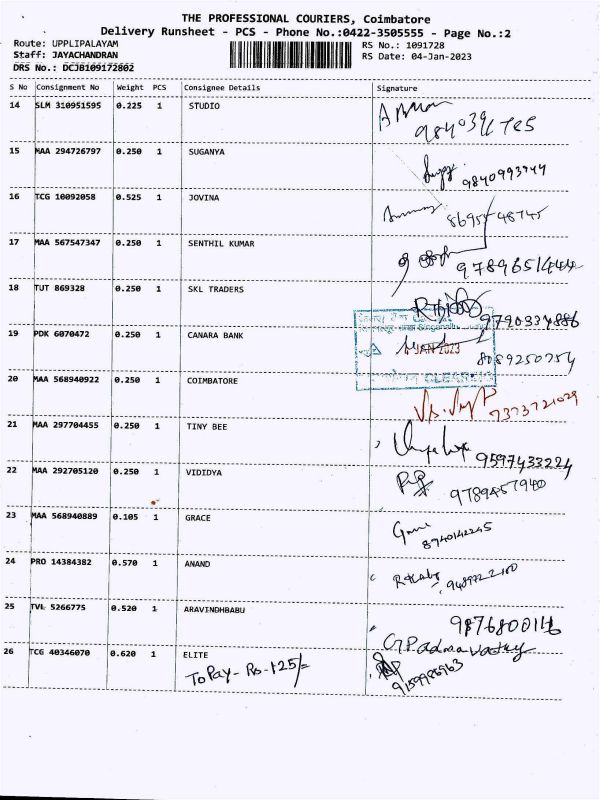 THE PROFESSIONAL COURIERS, Coimbatore
Delivery Runsheet - PCS - Phone No.:0422-3505555 - Page No.:2
Route: UPPLIPALAYAM RS No.: 1091728
Staff: JAYACHANDRAN RS Date: 04-Jan-2023
DRS No.: DCJB109172802
S No Consignment No Weight PCS Consignee Details Signature
14 SLM 310951595 0.225 1 STUDIO
15 MAA 294726797 0.250 1 SUGANYA
9840993944
16 TCG 10092058 0.525 1 JOVINA
17 MAA 567547347 0.250 1 SENTHIL KUMAR
18 TUT 869328 0.250 1 SKL TRADERS
9790334886
19 PDK 6070472 0.250 1 CANARA BANK
JAN 2023
8089250754
CLEARING
20 MAA 568940922 0.250 1 COIMBATORE
7373721029
21 MAA 297704455 0.250 1 TINY BEE
9597433224
22 MAA 292705120 0.250 1 VIDIDYA
9789457940
23 MAA 568940889 0.105 1 GRACE
8940142245
24 PRO 14384382 0.570 1 ANAND
25 TVL 5266775 0.520 1 ARAVINDHBABU
9876800116
26 TCG 40346070 0.620 1 ELITE
G.Padmavathy
To Pay - Rs - 125/=